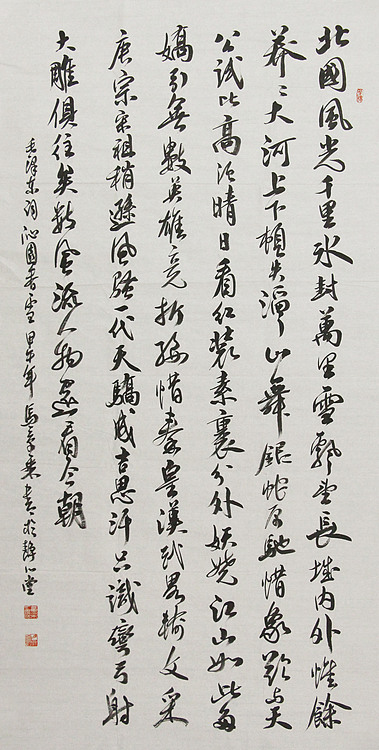 北國風光千里冰封萬里雪飄望長城內外惟餘
莽々大河上下頓失滔々山舞銀蛇原馳蜡象欲與天
公試比高須晴日看紅裝素裹分外妖嬈江山如此多
嬌引無數英雄競折腰惜秦皇漢武略輸文采
唐宗宋祖稍遜風騷一代天驕成吉思汗只識彎弓射
大雕俱往矣數風流人物還看今朝
毛澤東詞沁園春雪甲午年馬書於靜心堂